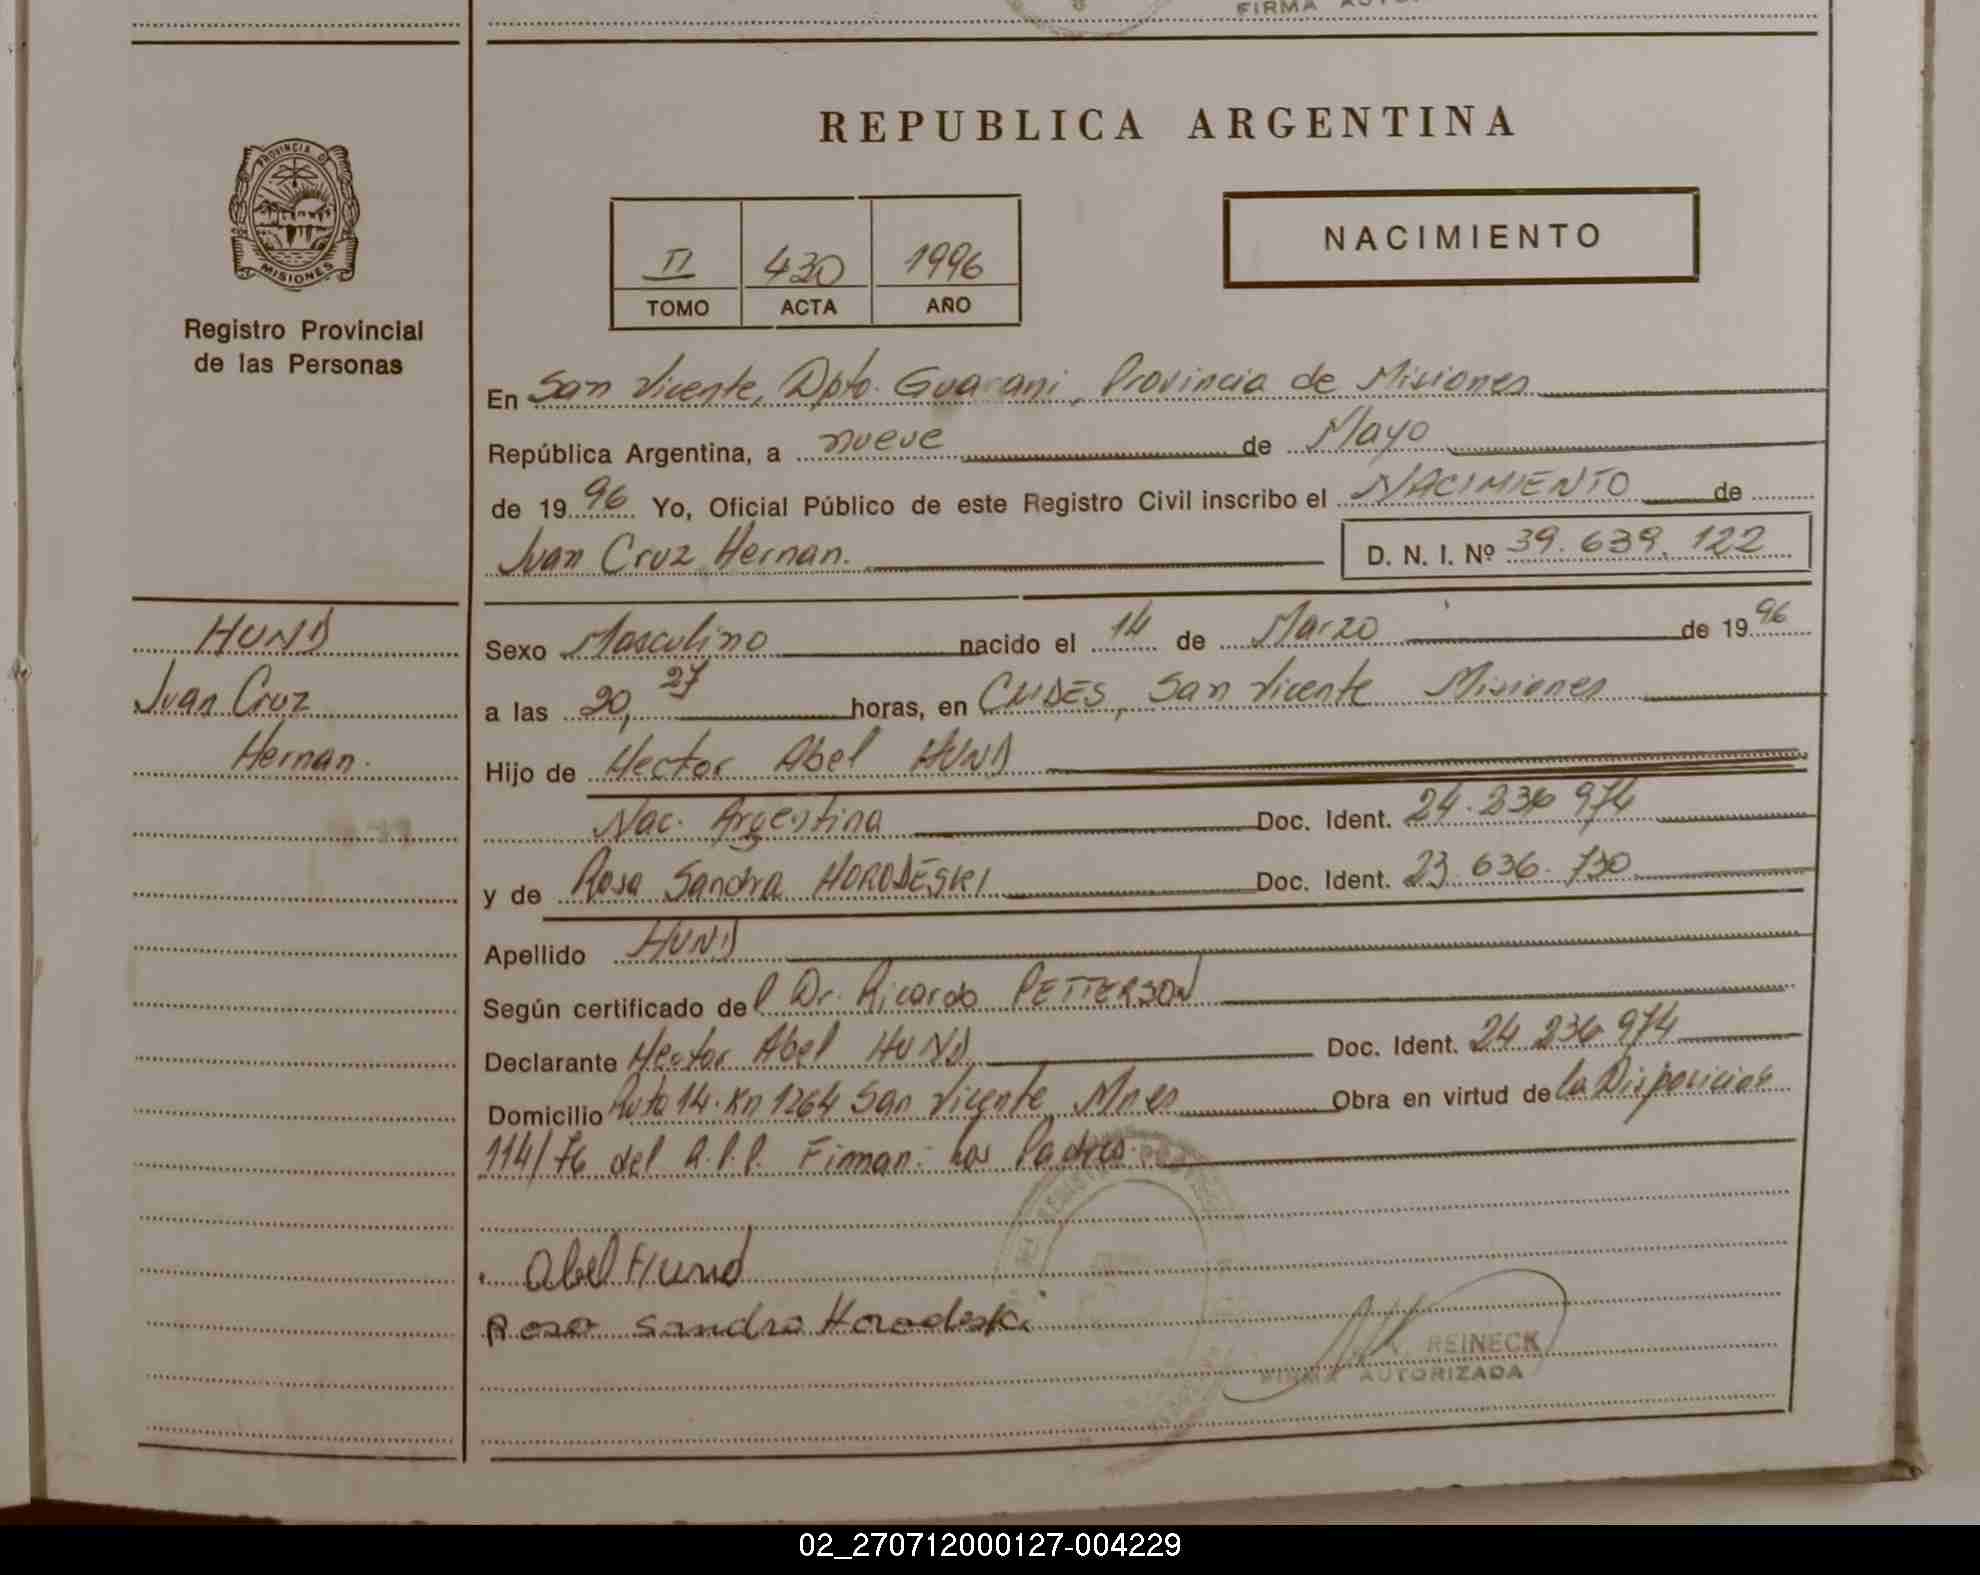 FIRMA
REPUBLICA ARGENTINA
PROVINCIA DE
MISIONES
Registro Provincial
de las Personas
II 430 1996
TOMO ACTA AÑO
NACIMIENTO
En San Vicente, Dpto. Guarani, Provincia de Misiones
República Argentina, a nueve de Mayo
de 1996 Yo, Oficial Público de este Registro Civil inscribo el NACIMIENTO de
Juan Cruz Hernan. D. N. I. Nº 39.639.122
HUND
Juan Cruz
Hernan.
Sexo Masculino nacido el 14 de Marzo de 1996
a las 20,27 horas, en San Vicente Misiones
Hijo de Hector Abel HUND
Nac. Argentina Doc. Ident. 24.236 974
y de Rosa Sandra HORODESKI Doc. Ident. 23.636.730
Apellido HUND
Según certificado del Dr. Ricardo PETTERSON
Declarante Hector Abel HUND Doc. Ident. 24 236 974
Domicilio Ruta 14. Km 1264 San Vicente Mnes Obra en virtud de la Disposicion
114/76 del R.P.P. Firman: los Padres.
Abel Hund
Rosa Sandra Horodeski
REINECK
FIRMA AUTORIZADA
02_270712000127-004229